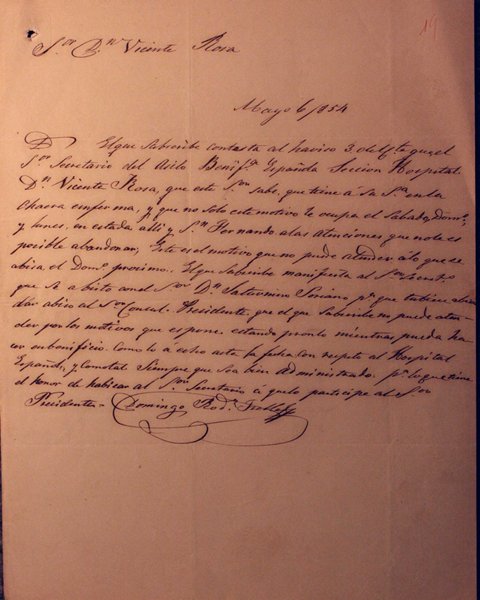 19
S.or D.n Vicente Rosa
Mayo 6/854
El que Subscribe contesta al haviso 3 del q.e
S.or Secretario del Asilo Benif.a Española Seccion Hospital.
D.n Vicente Rosa, que este S.or sabe, que tiene á su S.ra en la
Chacra enferma, y que no solo este motivo le ocupa el Sabado, dom.o
y lunes, en estada alli y S.n Fernando a las atenciones que no le es
posible abandonar; Este es el motivo que no puede atender a lo que se
abisa el Dom.o procsimo. El que Subscribe manifiesta al S.or Secret.o
que se a bisto con el S.or D.n Saturnino Soriano p.a que tubiese a
dar abiso al S.or Consul. Presidente, que el que Subscribe no puede aten-
der por los motivos que espone. estando pronto mientras pueda ha-
cer un benificio. Como lo á echo asta la fecha, con respeto al Hospital
Español; y Constal Siempre que sea bien Administrado. p.r lo que tiene
el honor de habisar al S.or Secretario á que lo participe al S.or
Presidente = Domingo Rod.z